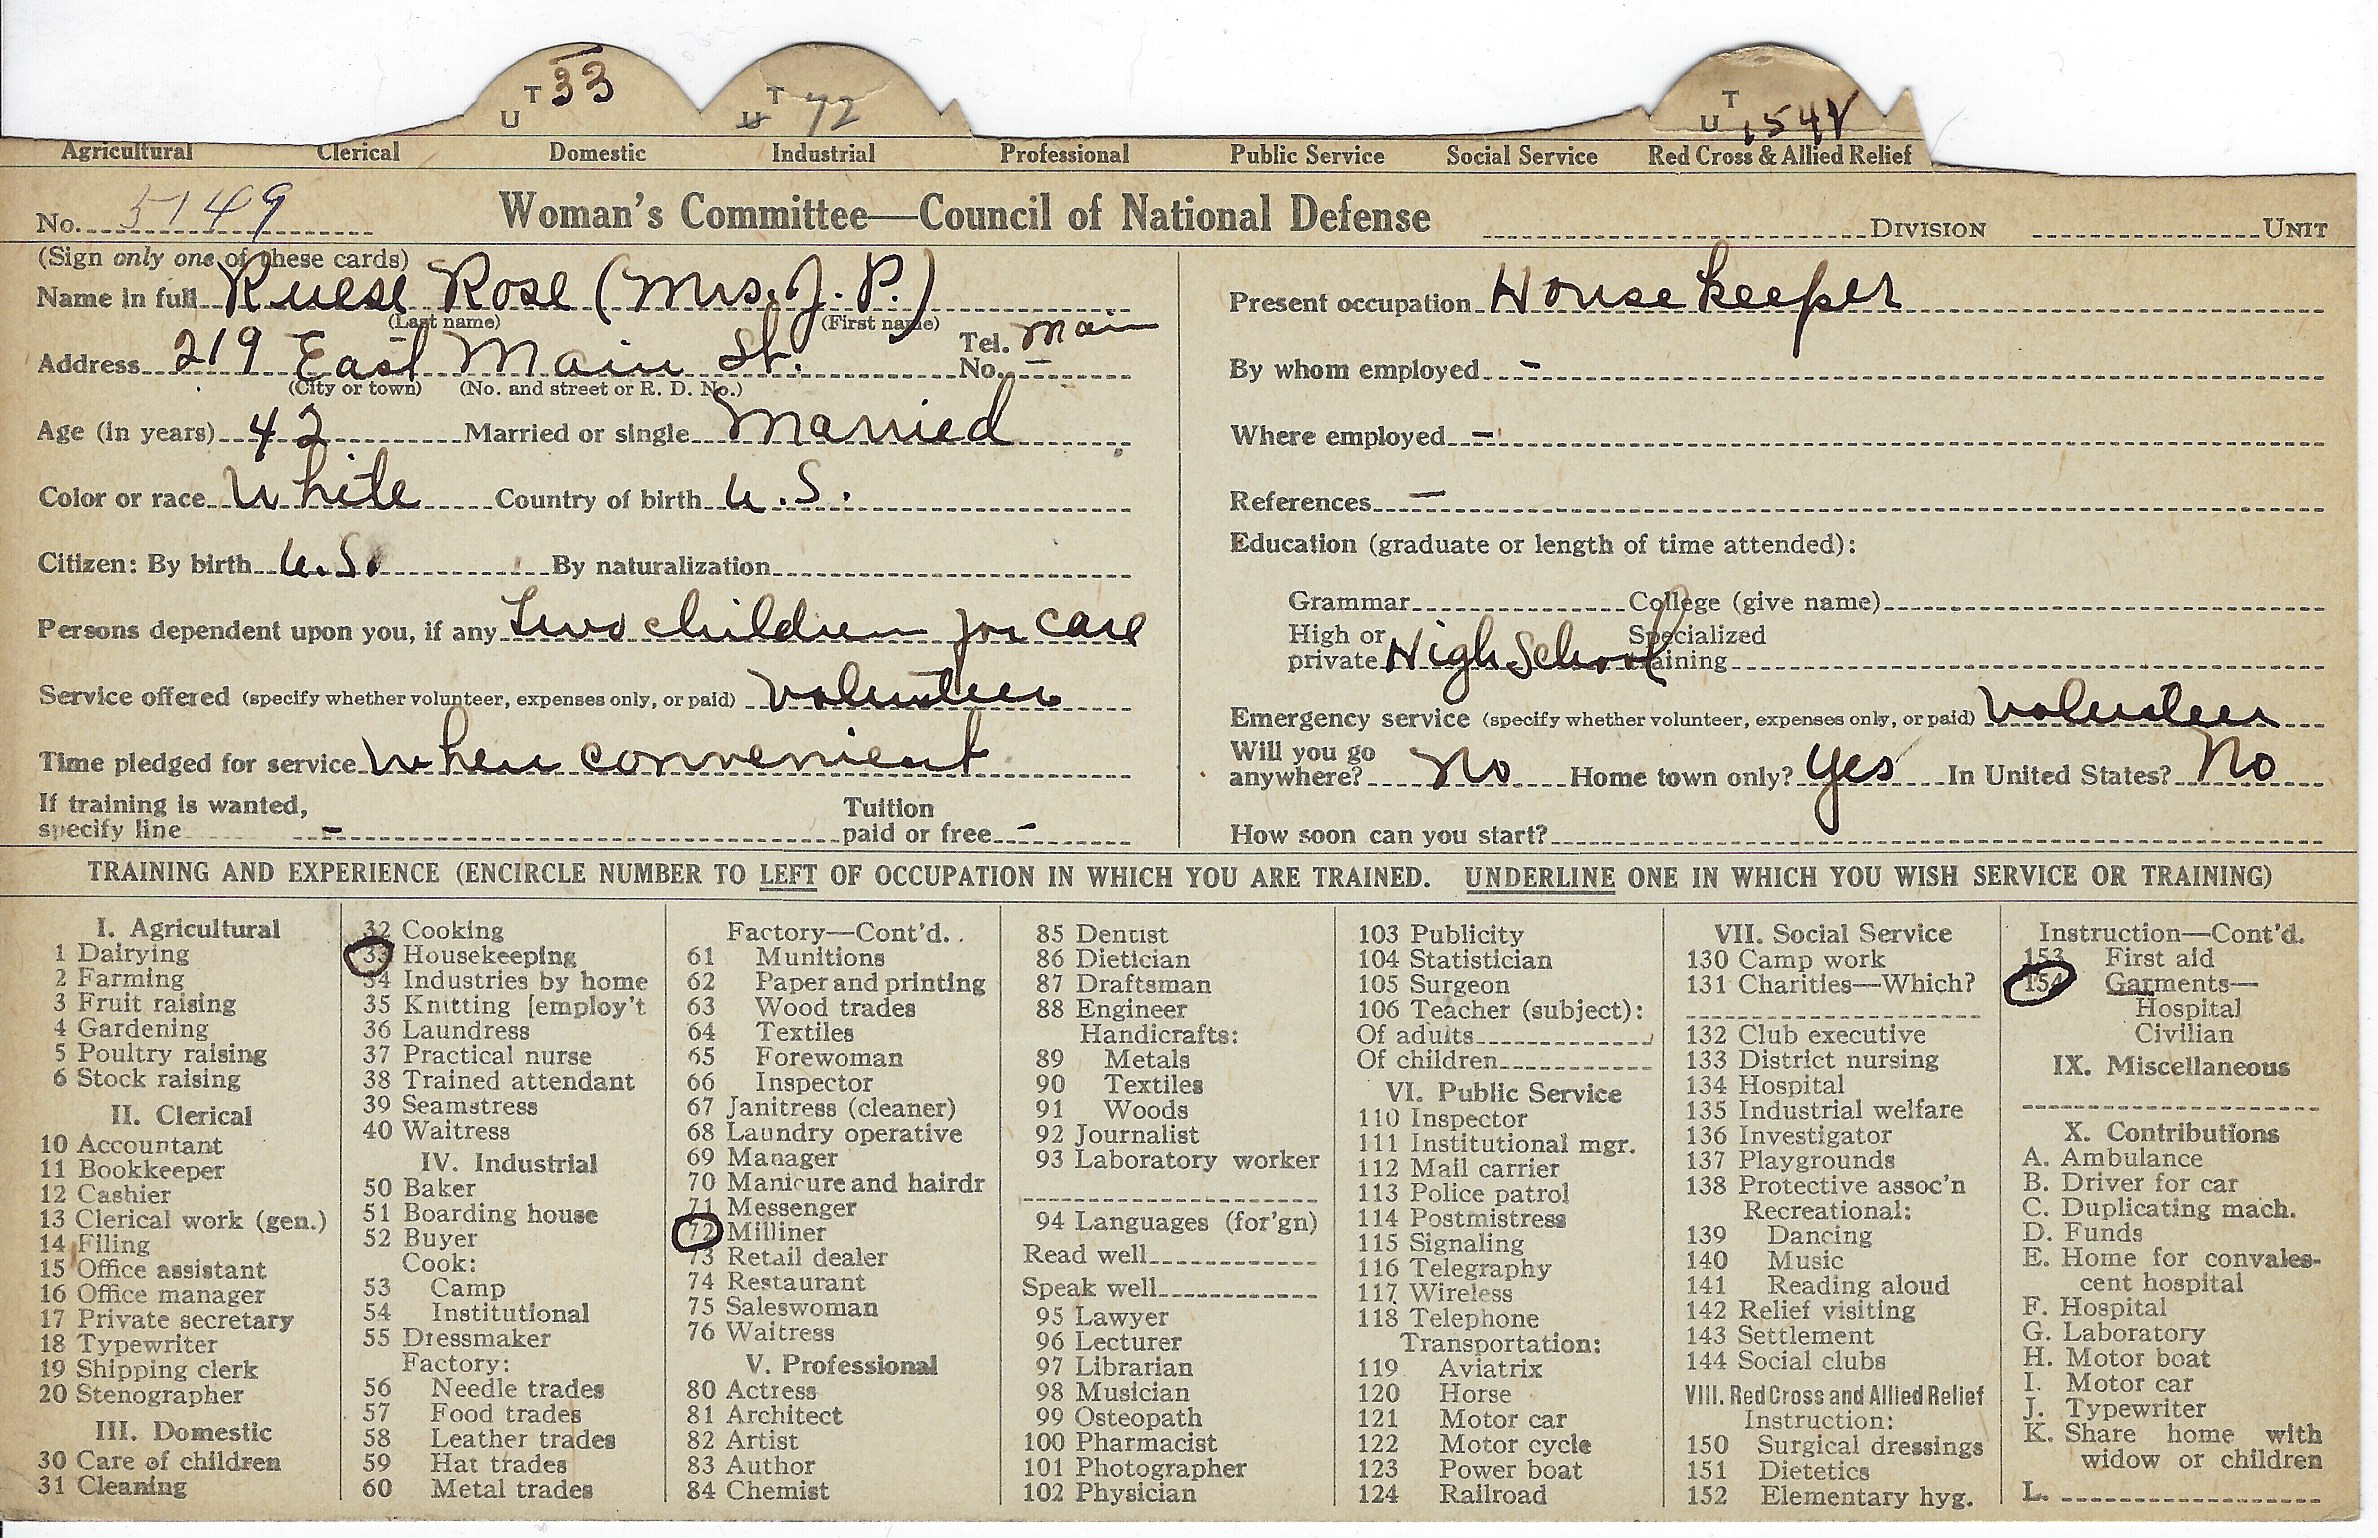 T 33
U
T 72
U
T
U 154V
Agricultural Clerical Domestic Industrial Professional Public Service Social Service Red Cross & Allied Relief
No. 5149 Woman's Committee—Council of National Defense DIVISION UNIT
(Sign only one of these cards)
Name in full Ruese Rose (Mrs. J. P.)
(Last name) (First name)
Address 219 East Main St. Tel. No. Main –
(City or town) (No. and street or R. D. No.)
Age (in years) 42 Married or single Married
Color or race White Country of birth U.S.
Citizen: By birth U.S. By naturalization
Persons dependent upon you, if any Two children for care
Service offered (specify whether volunteer, expenses only, or paid) Volunteer
Time pledged for service when convenient
If training is wanted,
specify line – Tuition paid or free –
Present occupation House keeper
By whom employed –
Where employed –
References –
Education (graduate or length of time attended):
Grammar College (give name)
High or private High School Specialized training
Emergency service (specify whether volunteer, expenses only, or paid) Volunteer
Will you go anywhere? No Home town only? Yes In United States? No
How soon can you start?
TRAINING AND EXPERIENCE (ENCIRCLE NUMBER TO LEFT OF OCCUPATION IN WHICH YOU ARE TRAINED. UNDERLINE ONE IN WHICH YOU WISH SERVICE OR TRAINING)
I. Agricultural
1 Dairying
2 Farming
3 Fruit raising
4 Gardening
5 Poultry raising
6 Stock raising
II. Clerical
10 Accountant
11 Bookkeeper
12 Cashier
13 Clerical work (gen.)
14 Filing
15 Office assistant
16 Office manager
17 Private secretary
18 Typewriter
19 Shipping clerk
20 Stenographer
III. Domestic
30 Care of children
31 Cleaning
32 Cooking
33 Housekeeping
34 Industries by home
35 Knitting [employ't
36 Laundress
37 Practical nurse
38 Trained attendant
39 Seamstress
40 Waitress
IV. Industrial
50 Baker
51 Boarding house
52 Buyer
Cook:
53 Camp
54 Institutional
55 Dressmaker
Factory:
56 Needle trades
57 Food trades
58 Leather trades
59 Hat trades
60 Metal trades
Factory—Cont'd.
61 Munitions
62 Paper and printing
63 Wood trades
64 Textiles
65 Forewoman
66 Inspector
67 Janitress (cleaner)
68 Laundry operative
69 Manager
70 Manicure and hairdr
71 Messenger
72 Milliner
73 Retail dealer
74 Restaurant
75 Saleswoman
76 Waitress
V. Professional
80 Actress
81 Architect
82 Artist
83 Author
84 Chemist
85 Dentist
86 Dietician
87 Draftsman
88 Engineer
Handicrafts:
89 Metals
90 Textiles
91 Woods
92 Journalist
93 Laboratory worker
94 Languages (for'gn)
Read well
Speak well
95 Lawyer
96 Lecturer
97 Librarian
98 Musician
99 Osteopath
100 Pharmacist
101 Photographer
102 Physician
103 Publicity
104 Statistician
105 Surgeon
106 Teacher (subject):
Of adults
Of children
VI. Public Service
110 Inspector
111 Institutional mgr.
112 Mail carrier
113 Police patrol
114 Postmistress
115 Signaling
116 Telegraphy
117 Wireless
118 Telephone
Transportation:
119 Aviatrix
120 Horse
121 Motor car
122 Motor cycle
123 Power boat
124 Railroad
VII. Social Service
130 Camp work
131 Charities—Which?
132 Club executive
133 District nursing
134 Hospital
135 Industrial welfare
136 Investigator
137 Playgrounds
138 Protective assoc'n
Recreational:
139 Dancing
140 Music
141 Reading aloud
142 Relief visiting
143 Settlement
144 Social clubs
VIII. Red Cross and Allied Relief
Instruction:
150 Surgical dressings
151 Dietetics
152 Elementary hyg.
Instruction—Cont'd.
153 First aid
154 Garments—
Hospital
Civilian
IX. Miscellaneous
X. Contributions
A. Ambulance
B. Driver for car
C. Duplicating mach.
D. Funds
E. Home for convales-
cent hospital
F. Hospital
G. Laboratory
H. Motor boat
I. Motor car
J. Typewriter
K. Share home with
widow or children
L.